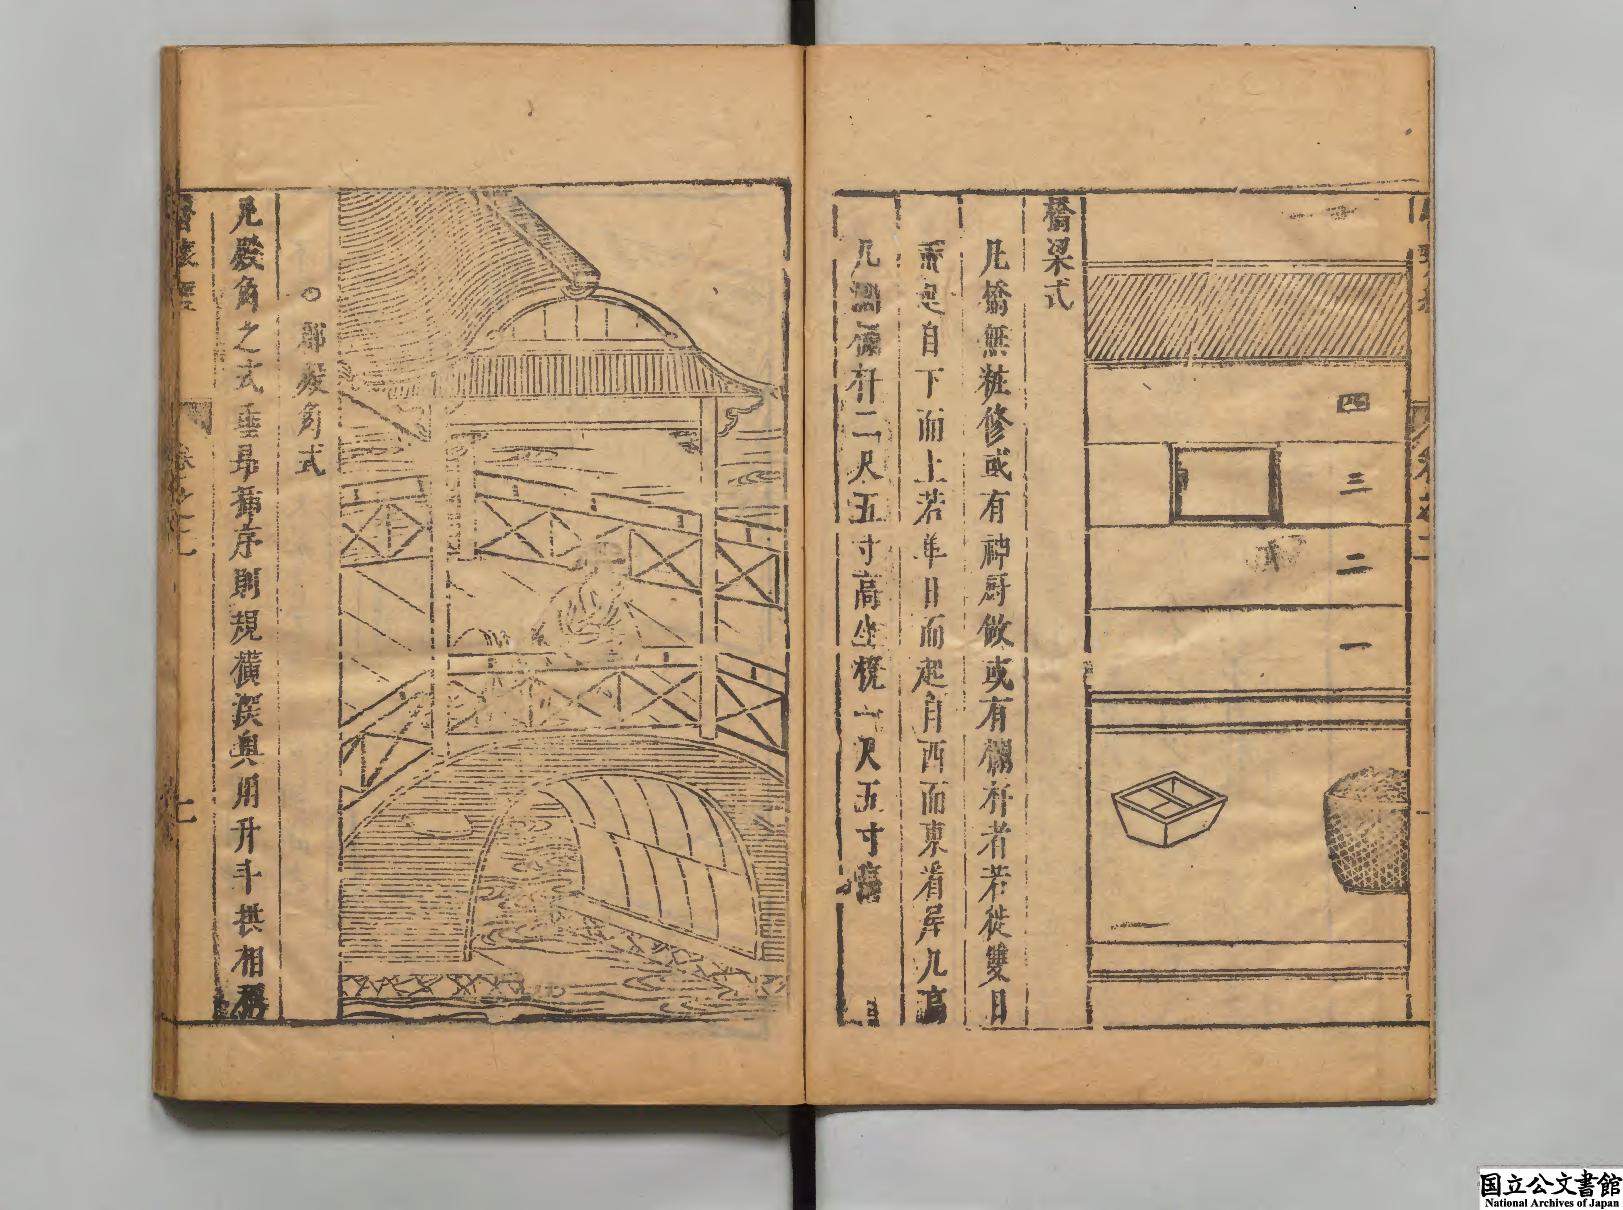 四
三
二
一
橋梁式
凡橋無粧修或有神厨做或有欄杆者若從雙日
而起自下而上若单日而起自西而東看屋几高
几濶欄杆二尺五寸高坐櫈一尺五寸高
○郡殿角式
凡殿角之式垂昂插序則規橫深奥用升斗拱相稱
卷之二
七
国立公文書館
National Archives of Japan